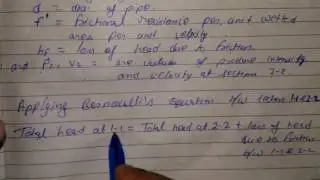 d = dia. of pipe.
f' = frictional resistance per unit wetted
area per unit velocity
hf = loss of head due to friction
and P2, V2 = are values of pressure intensity
and velocity at section 2-2.
Applying Bernoulli's Equation b/w section 1-1 & 2-2
Total head at 1-1 = Total head at 2-2 + loss of head
due to friction
b/w 1-1 & 2-2